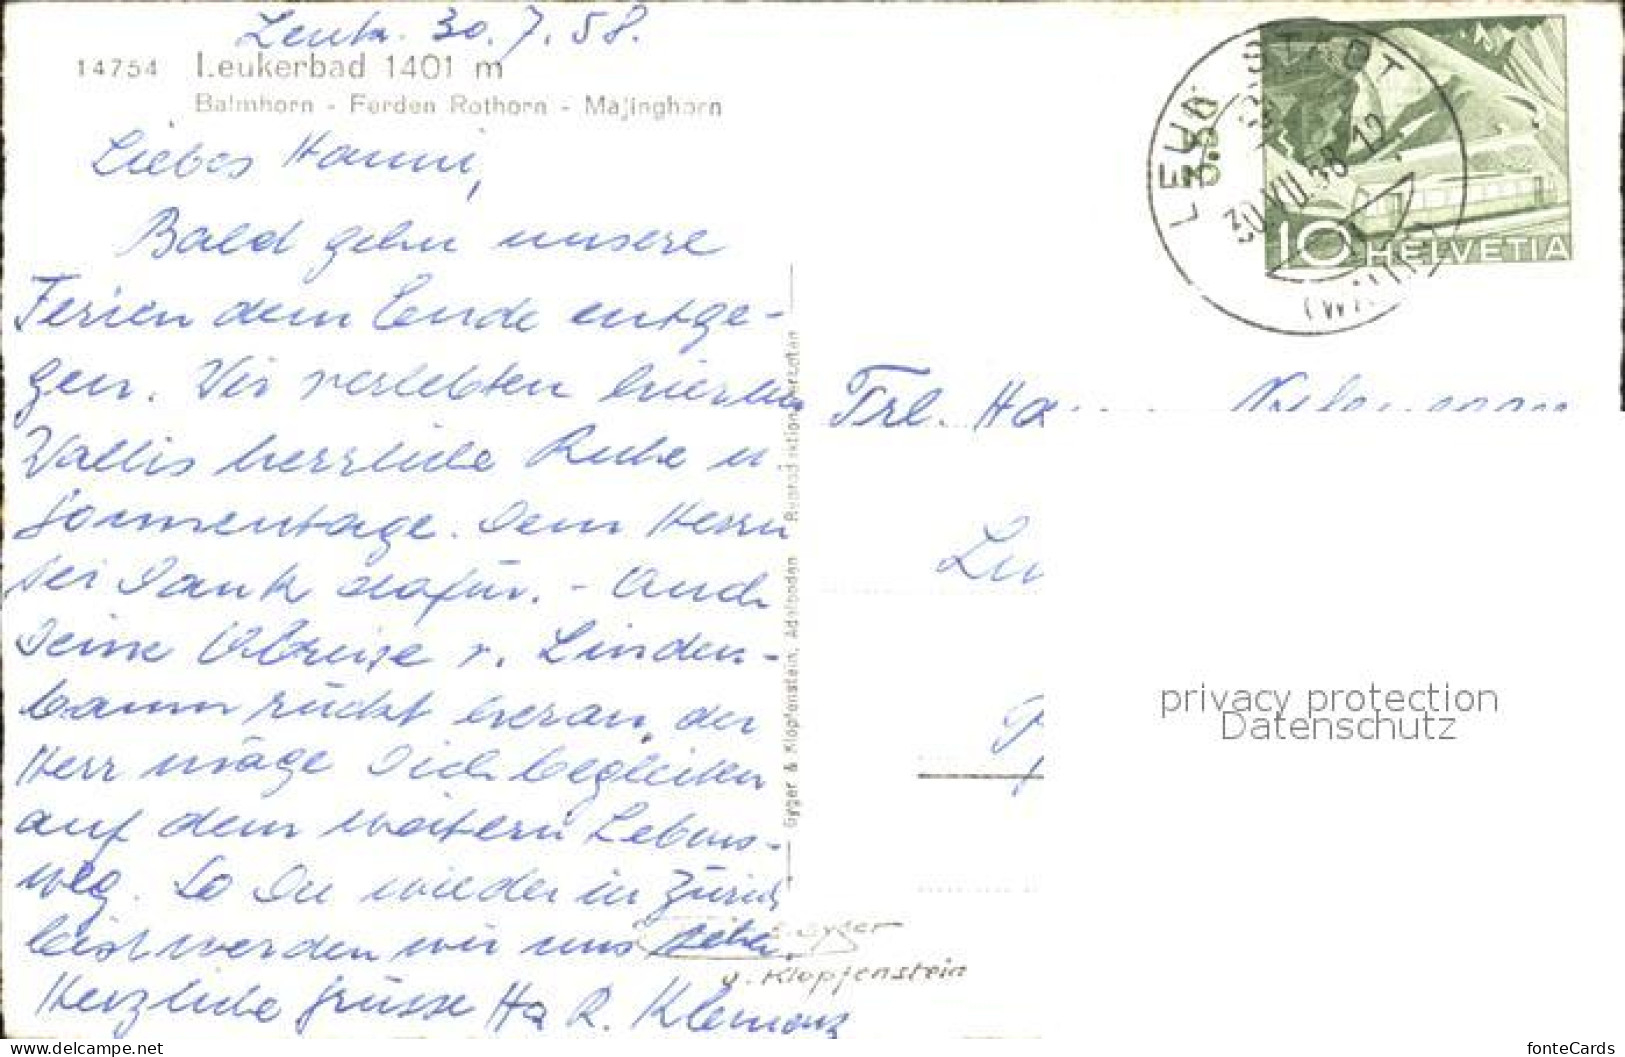 Leuk. 30. 7. 58.
14754 Leukerbad 1401 m
Balmhorn - Ferden Rothorn - Majinghorn
Liebes Hanni,
Bald gehn unsere
Ferien dem Ende entge-
gen. Wir verlebten hier im
Wallis herrliche Ruhe u
Sonnentage. Dem Herrn
sei Dank dafür. - Auch
Deine Abreise v. Linden-
baum rückt heran, der
Herr möge Dich begleiten
auf dem weitern Lebens-
weg. So Du wieder in Zürich
bist werden wir uns sehen.
Herzliche Grüsse Ha R. Klemenz
Gyger & Klopfenstein, Adelboden Reproduktion verboten
E. Gyger
u. Klopfenstein
LEUK STADT
30.VII.58-12
(WALLIS)
10 HELVETIA
Frl.
privacy protection
Datenschutz
the-best-of-web.com
fonteCards